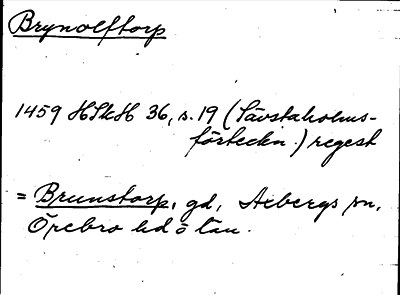 Brynolftorp
1459 HSkH 36, s. 19 (Sävstaholms-
förteckn.) regest
= Brunstorp, gd, Axbergs sn,
Örebro hd o län.